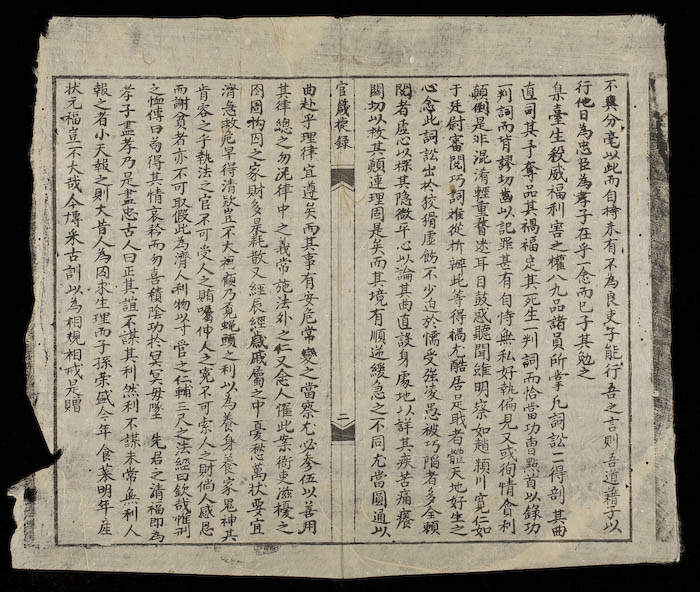 不與分毫以此而自持未有不為良吏子能行吾之言則吾道藉子以
行他日為忠臣為孝子在乎一念而已子其勉之
臬臺生殺威福利害之權八九品諸員所掌凡詞訟一得剖其曲
直司其予奪品其禍福定其死生一判詞而恰當功曹點首以錄功
判詞而背謬切齒以記罪甚有自恃無私好執偏見又或徇情貪利
顛倒是非混淆輕重瞽迷耳目鼓惑聽聞維明察如趙頻川寬仁如
于廷尉審閱巧詞难從折辦此等得禍尤酷居是戝者體天地好生之
心念此詞訟出於狡猾虛飭不少迫於懦受強凌愚被巧陷者多全賴
閱者虛心以探其隱微平心以論其曲直設身處地以詳其疾苦痛癢
關切以救其顛連理周是矣而其境有順逆緩急之不同尤當圓通以
官箴捷錄
二
曲赴乎理律宜遵矣而其事有安危常變之當察尤必參伍以善用
其律總之勿泥律中之義常施法外之仁又念人懼此案衙吏滋擾之
因因拘囚之家財多杲耗散又經辰經歲戚屬之中憂愁萬狀要宜
濟急救危早得清欵豈不大袒頋乃覔蝇頭之利以為養身養家鬼神其
肯容之乎執法之官不可受人之賄囑伸人之寃不可索人之財倘人感恩
而謝貧者亦不可取假此為濟人利物以寸管之仁輔三尺之法經曰欽哉惟刑
之恤傳曰為得其情哀矜而勿喜積陰功扵冥冥毋墜 先君之清福即為
孝子盡孝乃是盡忠古人曰正其誼不謀其利然利不謀未常無利人
報之者小天報之則大肯人為囚求生理而子孫榮盛今年食菜明年產
狀元福豈不大哉今博采古訓以為相規相戒是贈